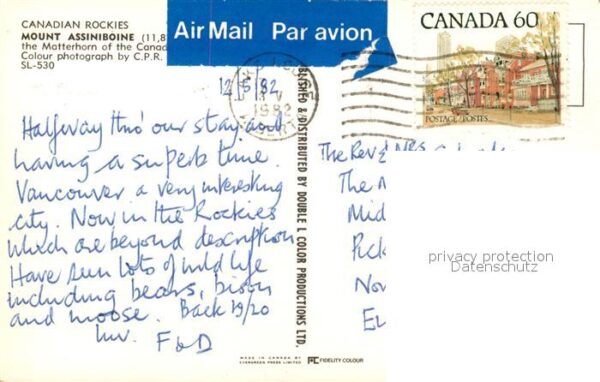 CANADIAN ROCKIES
MOUNT ASSINIBOINE (11,8
the Matterhorn of the Canad
Colour photograph by C.P.R.
SL-530
Air Mail Par avion
CANADA 60
POSTAGE/POSTES
1982
12/5/82
Halfway thro' our stay and
having a superb time.
Vancouver a very interesting
city. Now in the Rockies
which are beyond description
Have seen lots of wild life
including bears, bison
and moose. Back 19/20
luv. F & D
BLISHED & DISTRIBUTED BY DOUBLE L COLOR PRODUCTIONS LTD.
The Rev & Mrs
The
Mid
Pick
No
privacy protection
Datenschutz
MADE IN CANADA BY
EVERGREEN PRESS LIMITED
FIDELITY COLOUR